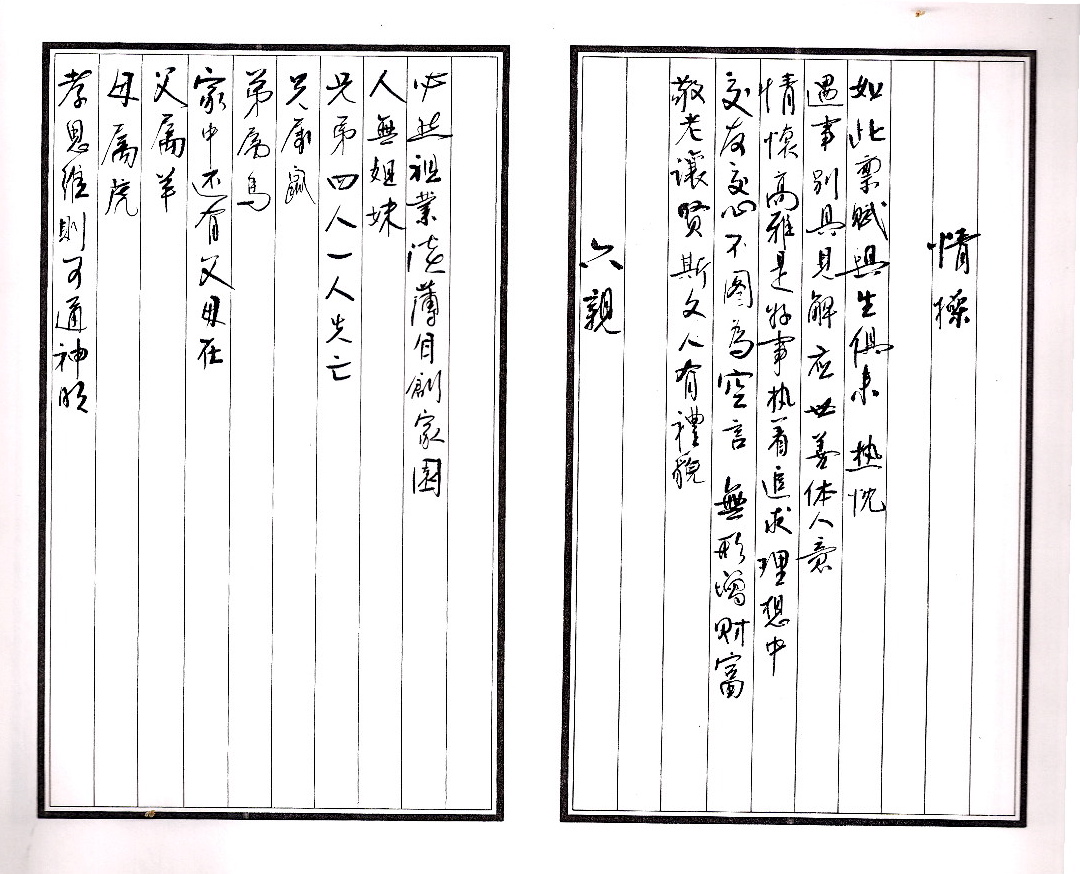 情操
如此禀赋與生俱来 热忱
遇事别具見解应世善体人意
情懷高雅是好事执着追求理想中
交友交心不图為空言 無形增财富
敬老讓贤斯文人有禮貌
六親
必然祖業淡薄自創家園
人無姐妹
兄弟四人一人失亡
兄属鼠
弟属馬
家中还有父母在
父属羊
母属虎
孝思維則可通神明